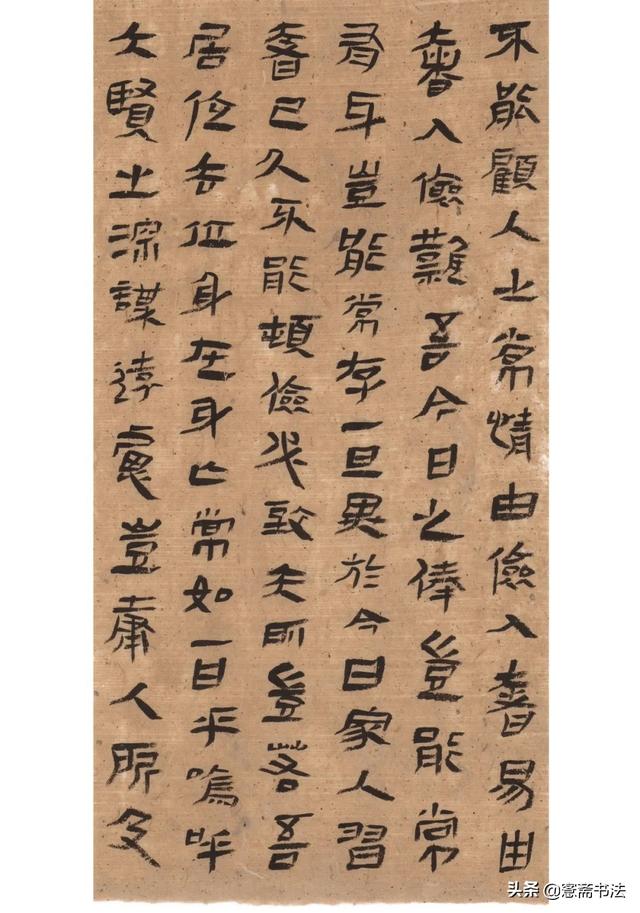 不能顧人之常情由儉入奢易由
奢入儉難吾今日之俸豈能常
有身豈能常存一旦異於今日家人習
奢已久不能頓儉必致失所豈若吾
居位去位身在身亡常如一日乎嗚呼
大賢之深謀遠慮豈庸人所及
头条 @愙斋书法